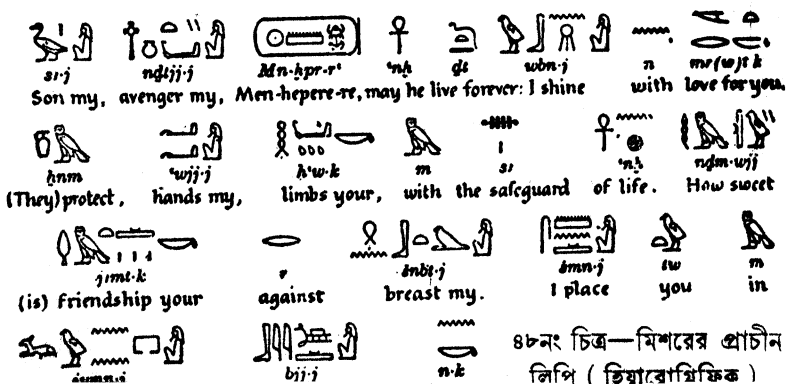 sꜣ·j nḏtjj·j Mn-ḫpr-rʿ ʿnḫ ḏt wbn·j n mr(w)t k
Son my, avenger my, Men-hepere-re, may he live forever: I shine with love for you.
ẖnm ʿwjj·j ḥʿw·k m sꜣ ʿnḫ nḏm·wjj
(They) protect, hands my, limbs your, with the safeguard of life. How sweet
jꜣmt·k r šnbt·j śmn·j tw m
(is) friendship your against breast my. I place you in
bjj·j n·k ৪৮নং চিত্র—মিশরের প্রাচীন
লিপি ( হিয়ারোগ্লিফিক )